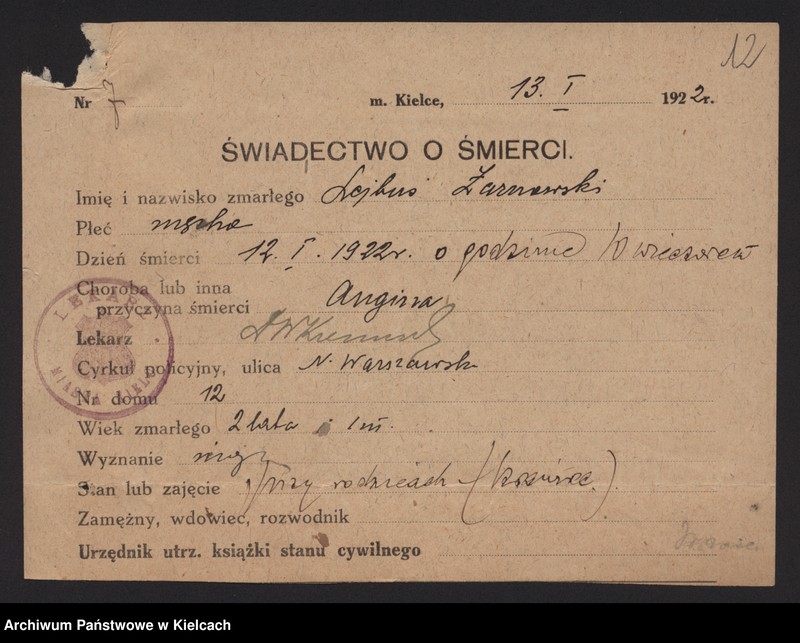 12
Nr 7 m. Kielce, 13. I 1922r.
ŚWIADECTWO O ŚMIERCI.
Imię i nazwisko zmarłego Lejbuś Żarnowski
Płeć męska
Dzień śmierci 12. I. 1922r. o godzinie 10 wieczorem
Choroba lub inna
przyczyna śmierci Angina
Lekarz
Cyrkuł policyjny, ulica N. Warszawska
Nr domu 12
Wiek zmarłego 2 lata i 1 m.
Wyznanie mojż
Stan lub zajęcie przy rodzicach
Zamężny, wdowiec, rozwodnik
Urzędnik utrz. książki stanu cywilnego
LEKARZ
MIASTA KIELC
Archiwum Państwowe w Kielcach